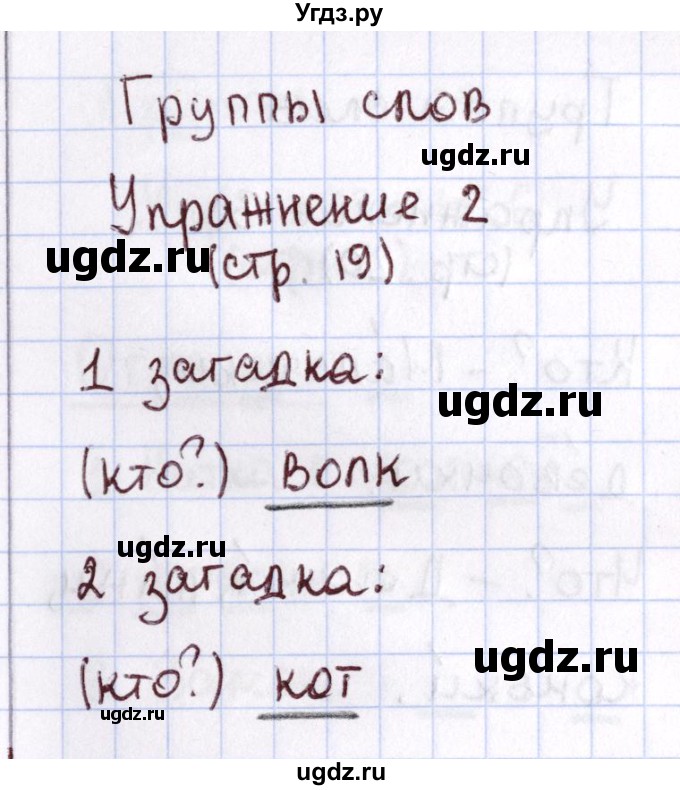 Угдз.ру
Группы слов
ugdz.ru
Упражнение 2
ugdz.ru (стр. 19)
1 загадка:
ugdz.ru
(кто?) волк
ugdz.ru
2 загадка:
ugdz.ru
(кто?) кот
ugdz.ru
ugdz.ru